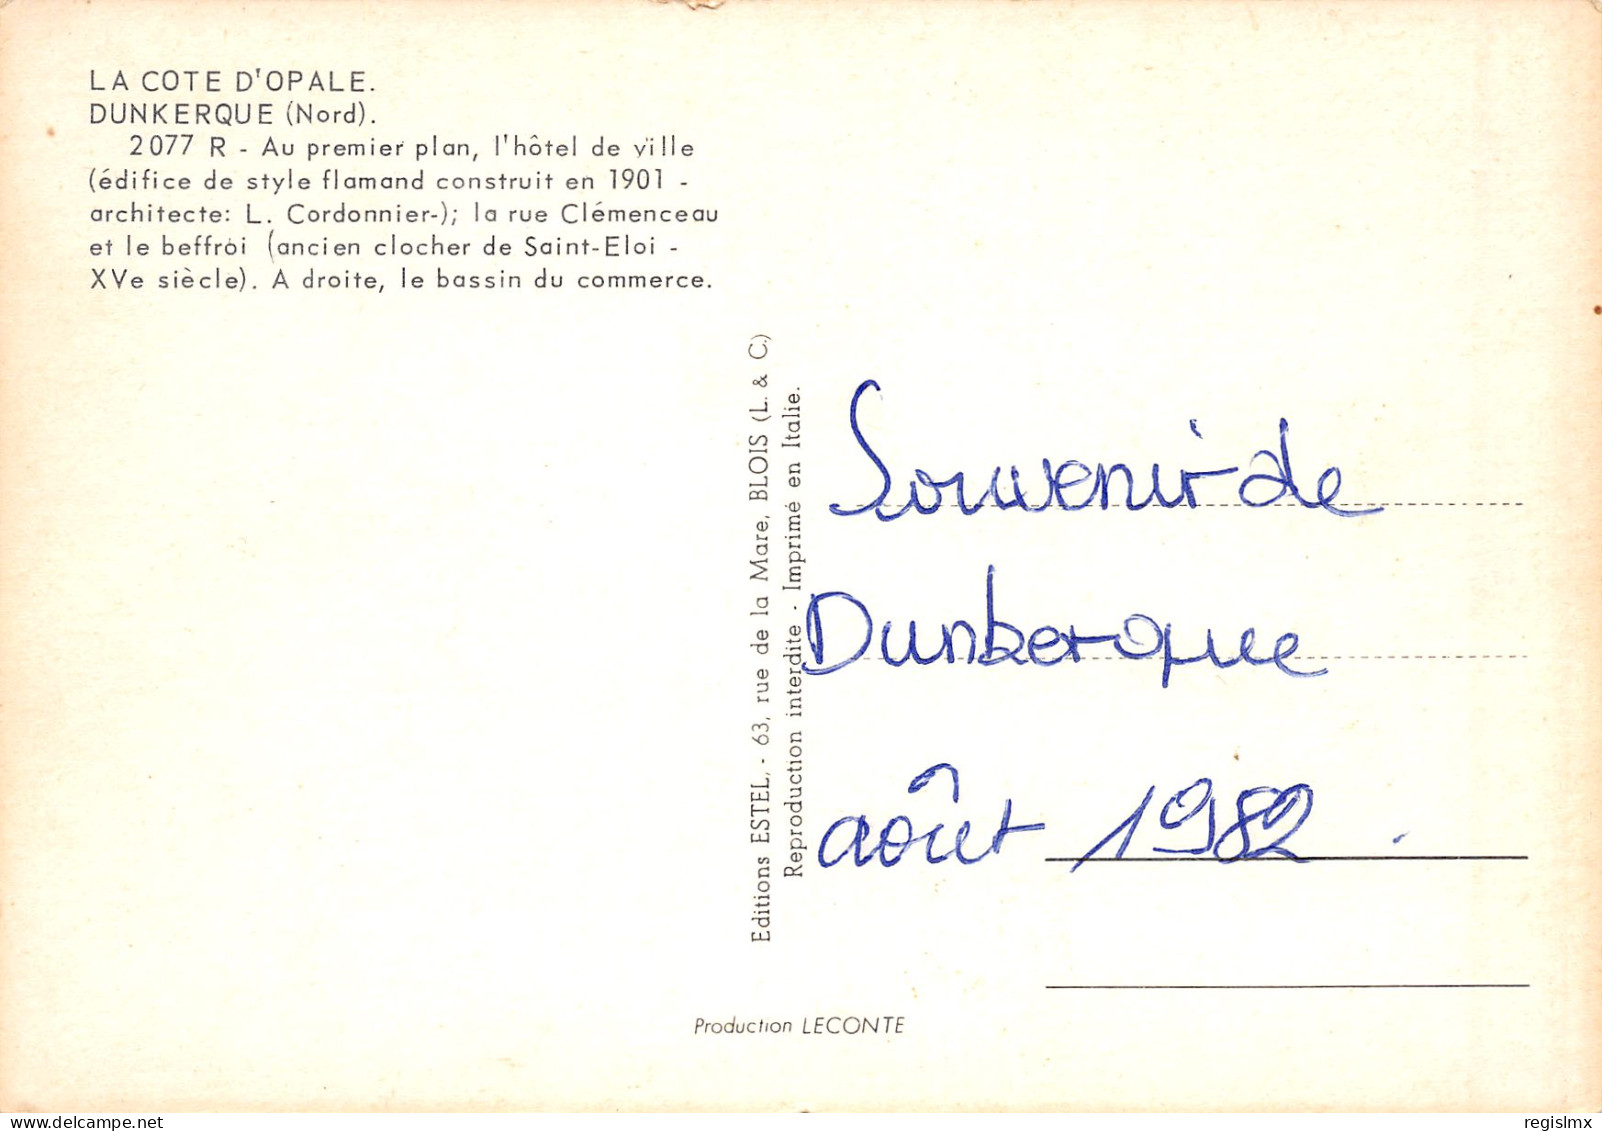 LA COTE D'OPALE.
DUNKERQUE (Nord).
2077 R - Au premier plan, l'hôtel de ville
(édifice de style flamand construit en 1901 -
architecte: L. Cordonnier-); la rue Clémenceau
et le beffroi (ancien clocher de Saint-Eloi -
XVe siècle). A droite, le bassin du commerce.
Editions ESTEL, - 63, rue de la Mare, BLOIS (L. & C.)
Reproduction interdite - Imprimé en Italie.
Souvenir de
Dunkerque
août 1982.
Production LECONTE
regislmx